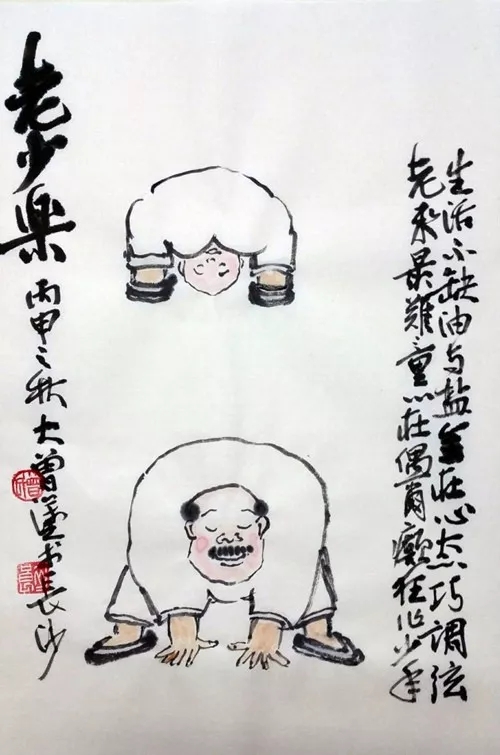 生活不缺油与盐全在心态巧调弦
老来最难童心在偶尔癫狂作少年
老少楽
丙申之秋大曾长沙